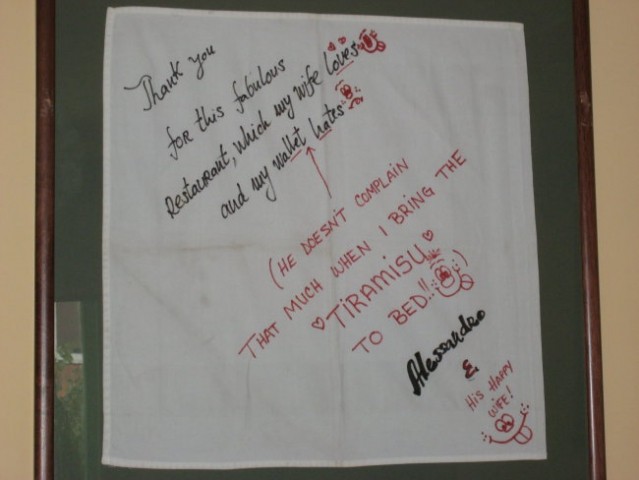 Thank you
for this fabulous
Restaurant, which my wife loves
and my wallet hates
(HE DOESN'T COMPLAIN
THAT MUCH WHEN I BRING THE
TIRAMISU
TO BED!!)
Alessandro
&
HIS HAPPY
WIFE!